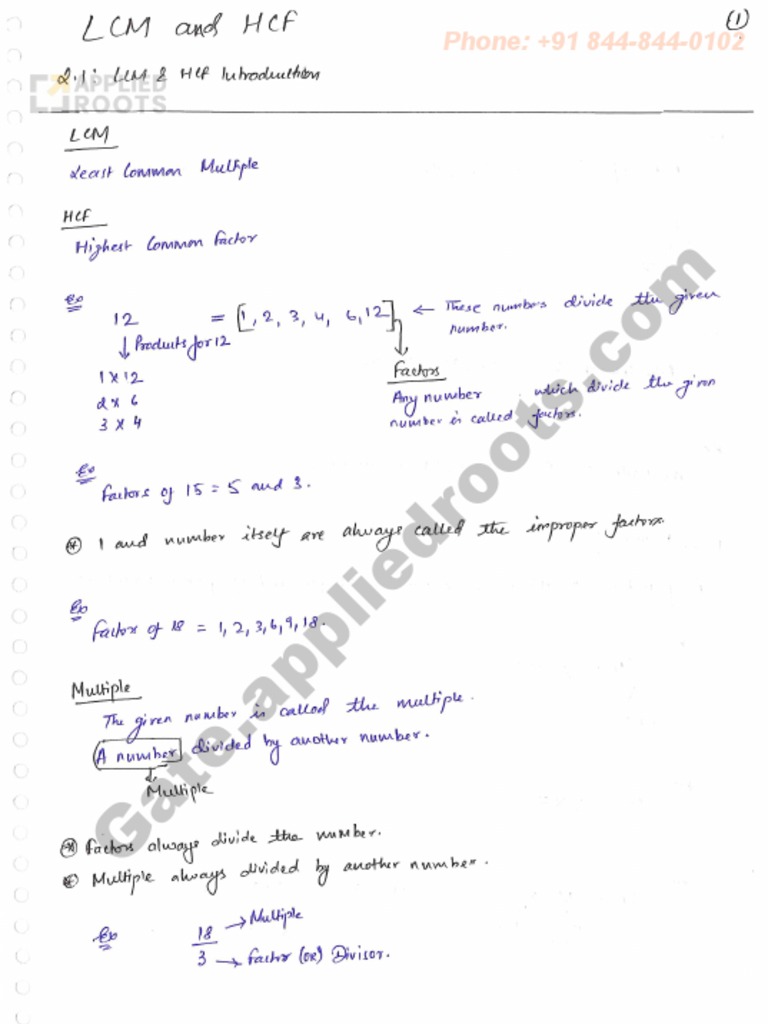 LCM and HCF
(1)
Phone: +91 844-844-0102
2.1: LCM & HCF Introduction
APPLIED
ROOTS
LCM
Least Common Multiple
HCF
Highest Common Factor
Ex
12 = [1, 2, 3, 4, 6, 12] ← These numbers divide the given
number.
↓ Products for 12
1 x 12
2 x 6
3 x 4
Factors
Any number which divide the given
number is called factors.
Ex
Factors of 15 = 5 and 3.
* 1 and number itself are always called the improper factors.
Ex
Factor of 18 = 1, 2, 3, 6, 9, 18.
Multiple
The given number is called the multiple.
A number divided by another number.
↓
Multiple
* Factors always divide the number.
* Multiple always divided by another number.
Ex
18 → Multiple
3 → Factor (OR) Divisor.
Gate.appliedroots.com